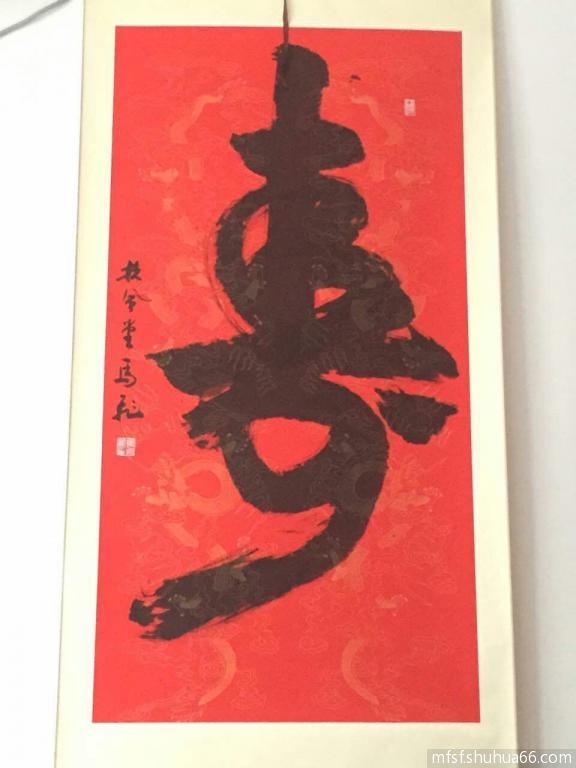 壽
扶风堂馬飛
mfsf.shuhua66.com